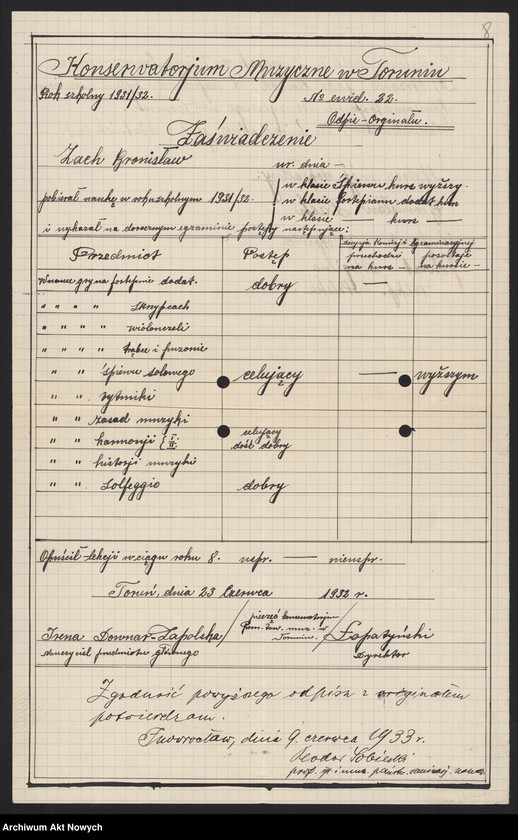 8
Konserwatorjum Muzyczne w Toruniu
Rok szkolny 1931/32. No ewid. 22.
Odpis-Orginału.
Zaświadczenie
Zach Bronisław ur. dnia —
pobierał naukę w roku szkolnym 1931/32.
w klasie Śpiewu kurs wyższy.
w klasie fortepianu dodat. kurs
w klasie — kurs —
i wykazał na dorocznym egzaminie postępy następujące:
Przedmiot Postęp
decyzją Komisji Egzaminacyjnej
przechodzi na kurs — pozostaje na kursie —
W nauce gry na fortepianie dodat. dobry —
" " " " skrzypcach
" " " " wiolonczeli
" " " " trąbce i puzonie
" " śpiewu solowego celujący — wyższym
" " rytmiki
" " zasad muzyki
" " harmonji { I. II. celujący dość dobry
" " historji muzyki
" " Solfeggio dobry
Opuścił lekcji w ciągu roku 8. uspr. — nieuspr.
Toruń, dnia 23 Czerwca 1932 r.
Irena Downar-Zapolska / pieczęć Konserwatorjum Pom. Tow. muz. w Toruniu. / Łapatyński
nauczyciel przedmiotu głównego Dyrektor
Zgodność powyższego odpisu z orginałem
potwierdzam.
Inowrocław, dnia 9 czerwca 1933 r.
Teodor Sobieski
Archiwum Akt Nowych